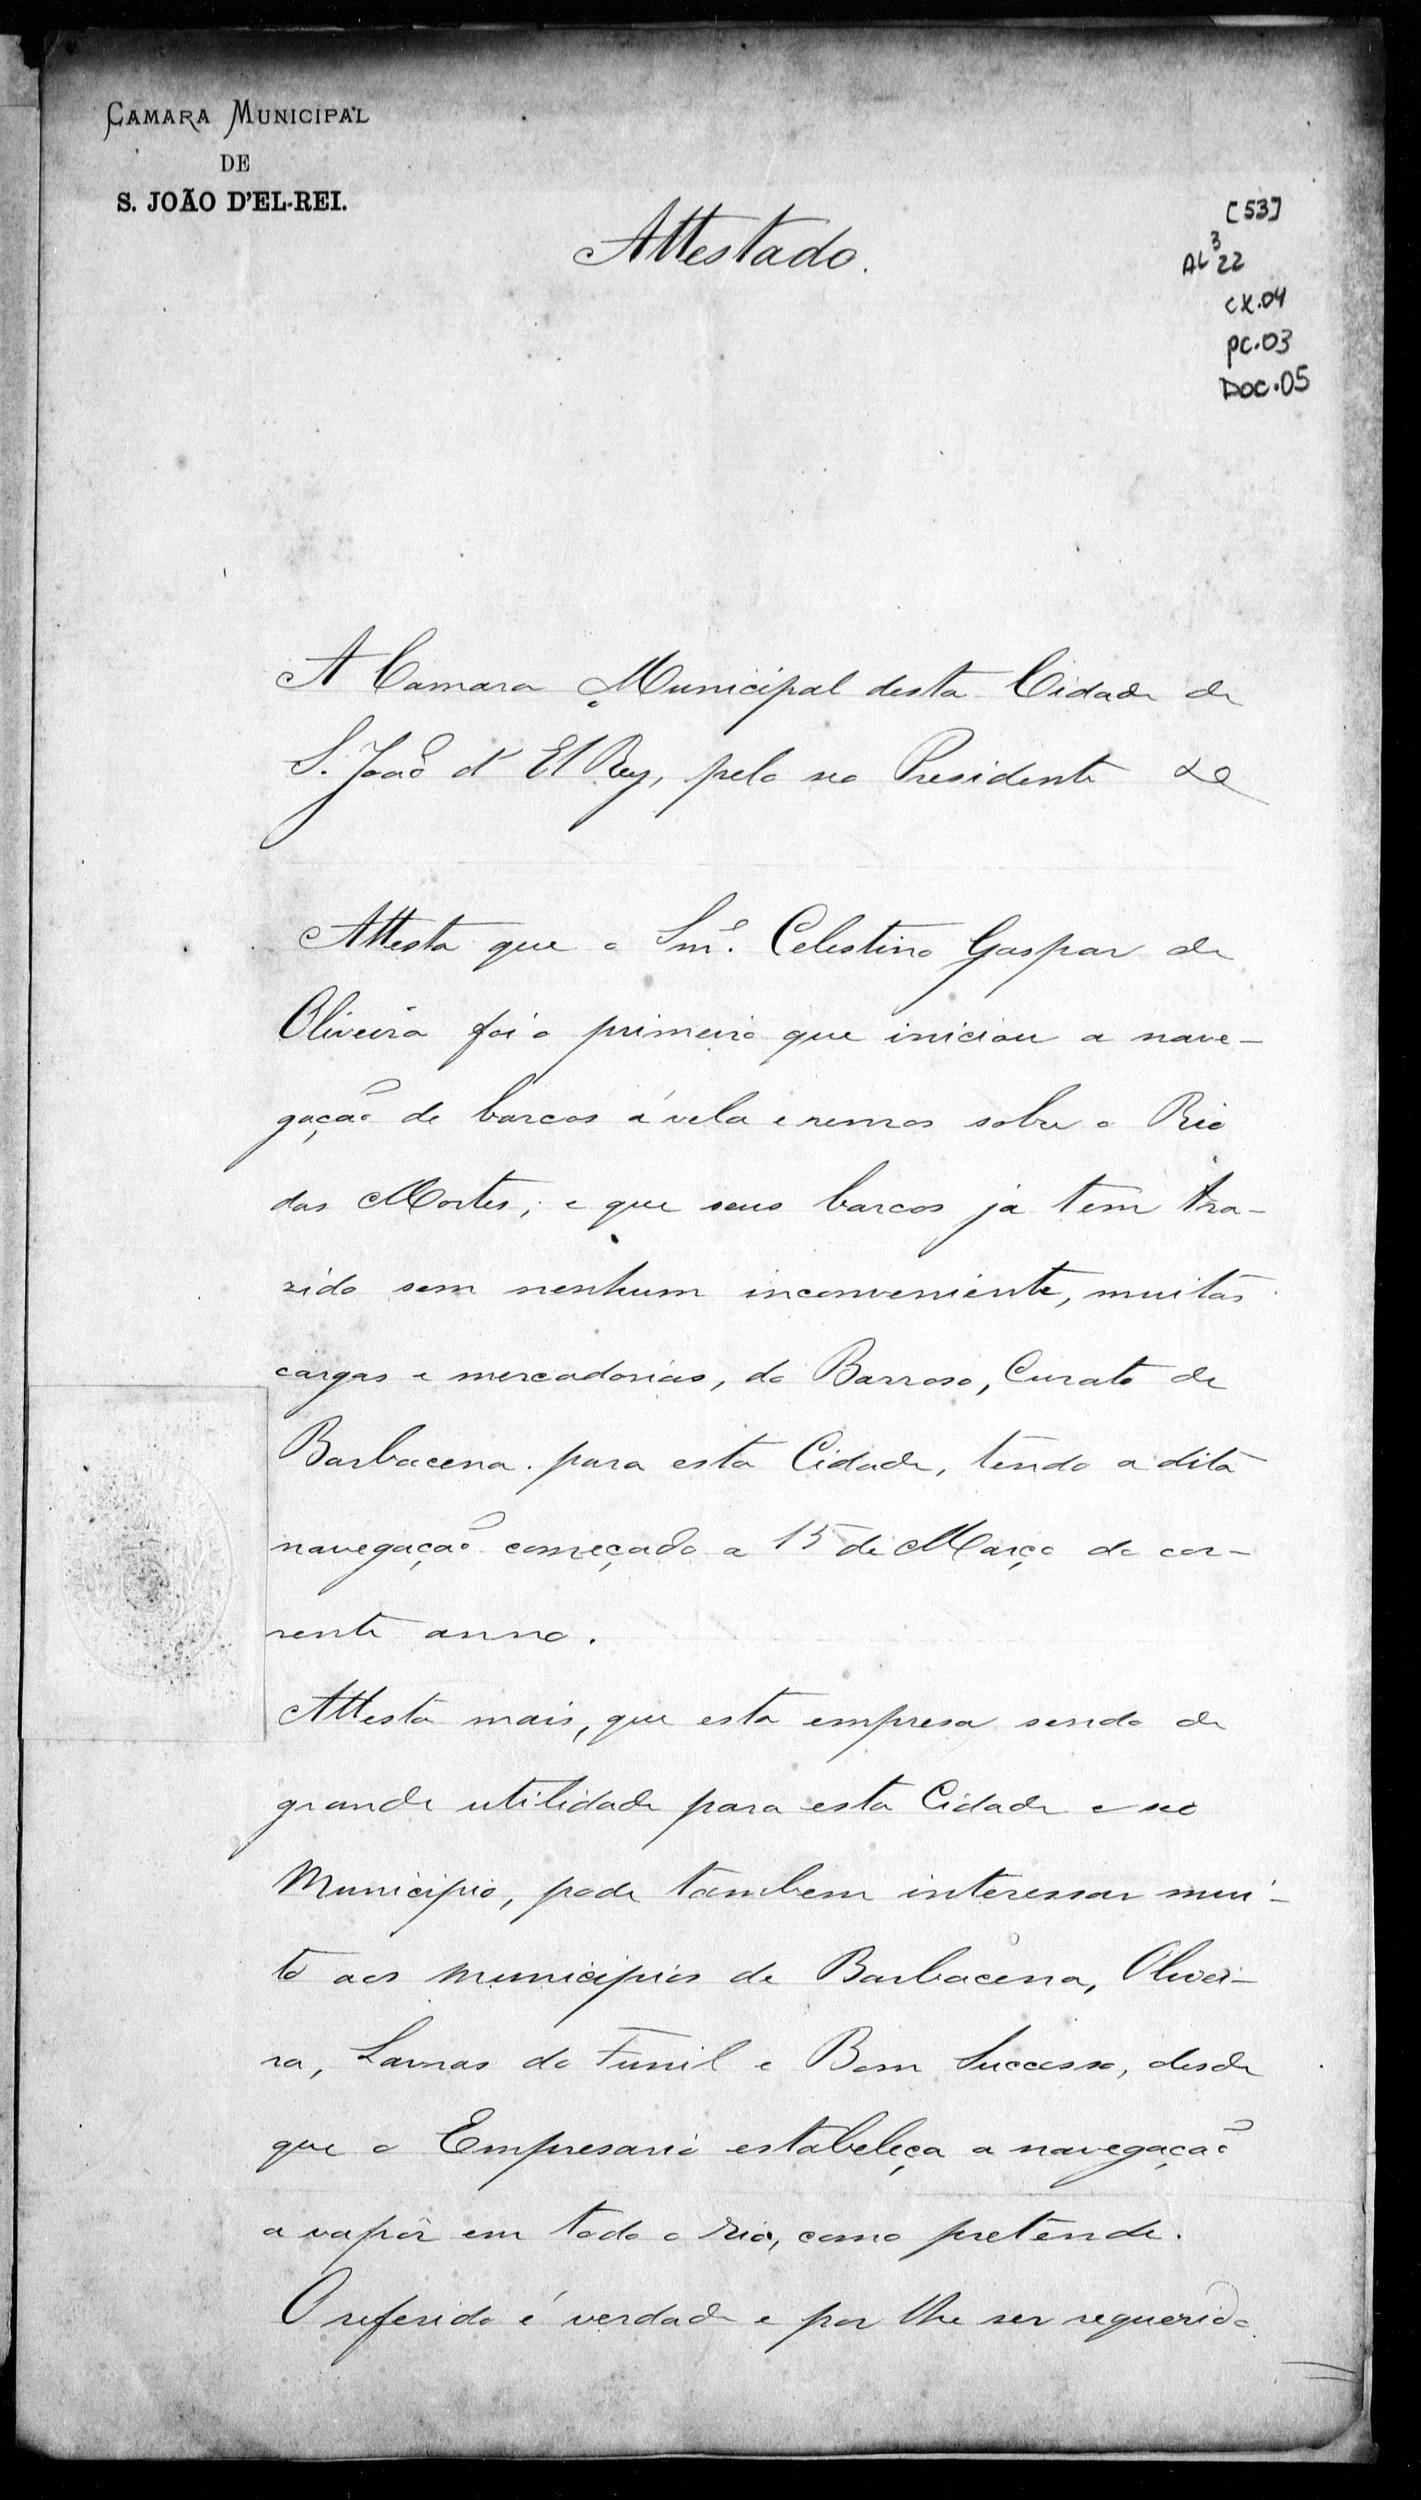 CAMARA MUNICIPAL
DE
S. JOÃO D'EL-REI.
Attestado.
[53]
AL³22
CX.04
PC.03
DOC.05
A Camara Municipal desta Cidade de
S. João d'El Rey, pelo seo Presidente &
Attesta que o Snr. Celestino Gaspar de
Oliveira foi o primeiro que iniciou a nave-
gação de barcos á vela e remos sobre o Rio
das Mortes; e que seus barcos ja tem tra-
zido sem nenhum inconveniente, muitas
cargas e mercadorias, do Barroso, Curato de
Barbacena para esta Cidade, tendo a dita
navegação começado a 15 de Março do cor-
rente anno.
Attesta mais, que esta empresa sendo de
grande utilidade para esta Cidade e seo
Municipio, pode tambem interessar mui-
to aos municipios de Barbacena, Olivei-
ra, Lavras do Funil e Bom Successo, desde
que o Empresario estabeleça a navegação
a vapôr em todo o rio, como pretende.
O referido é verdade e por lhe ser requerido